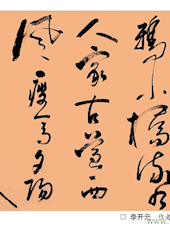 鸦小桥流水
人家古道西
风瘦马夕阳
李开元
www.